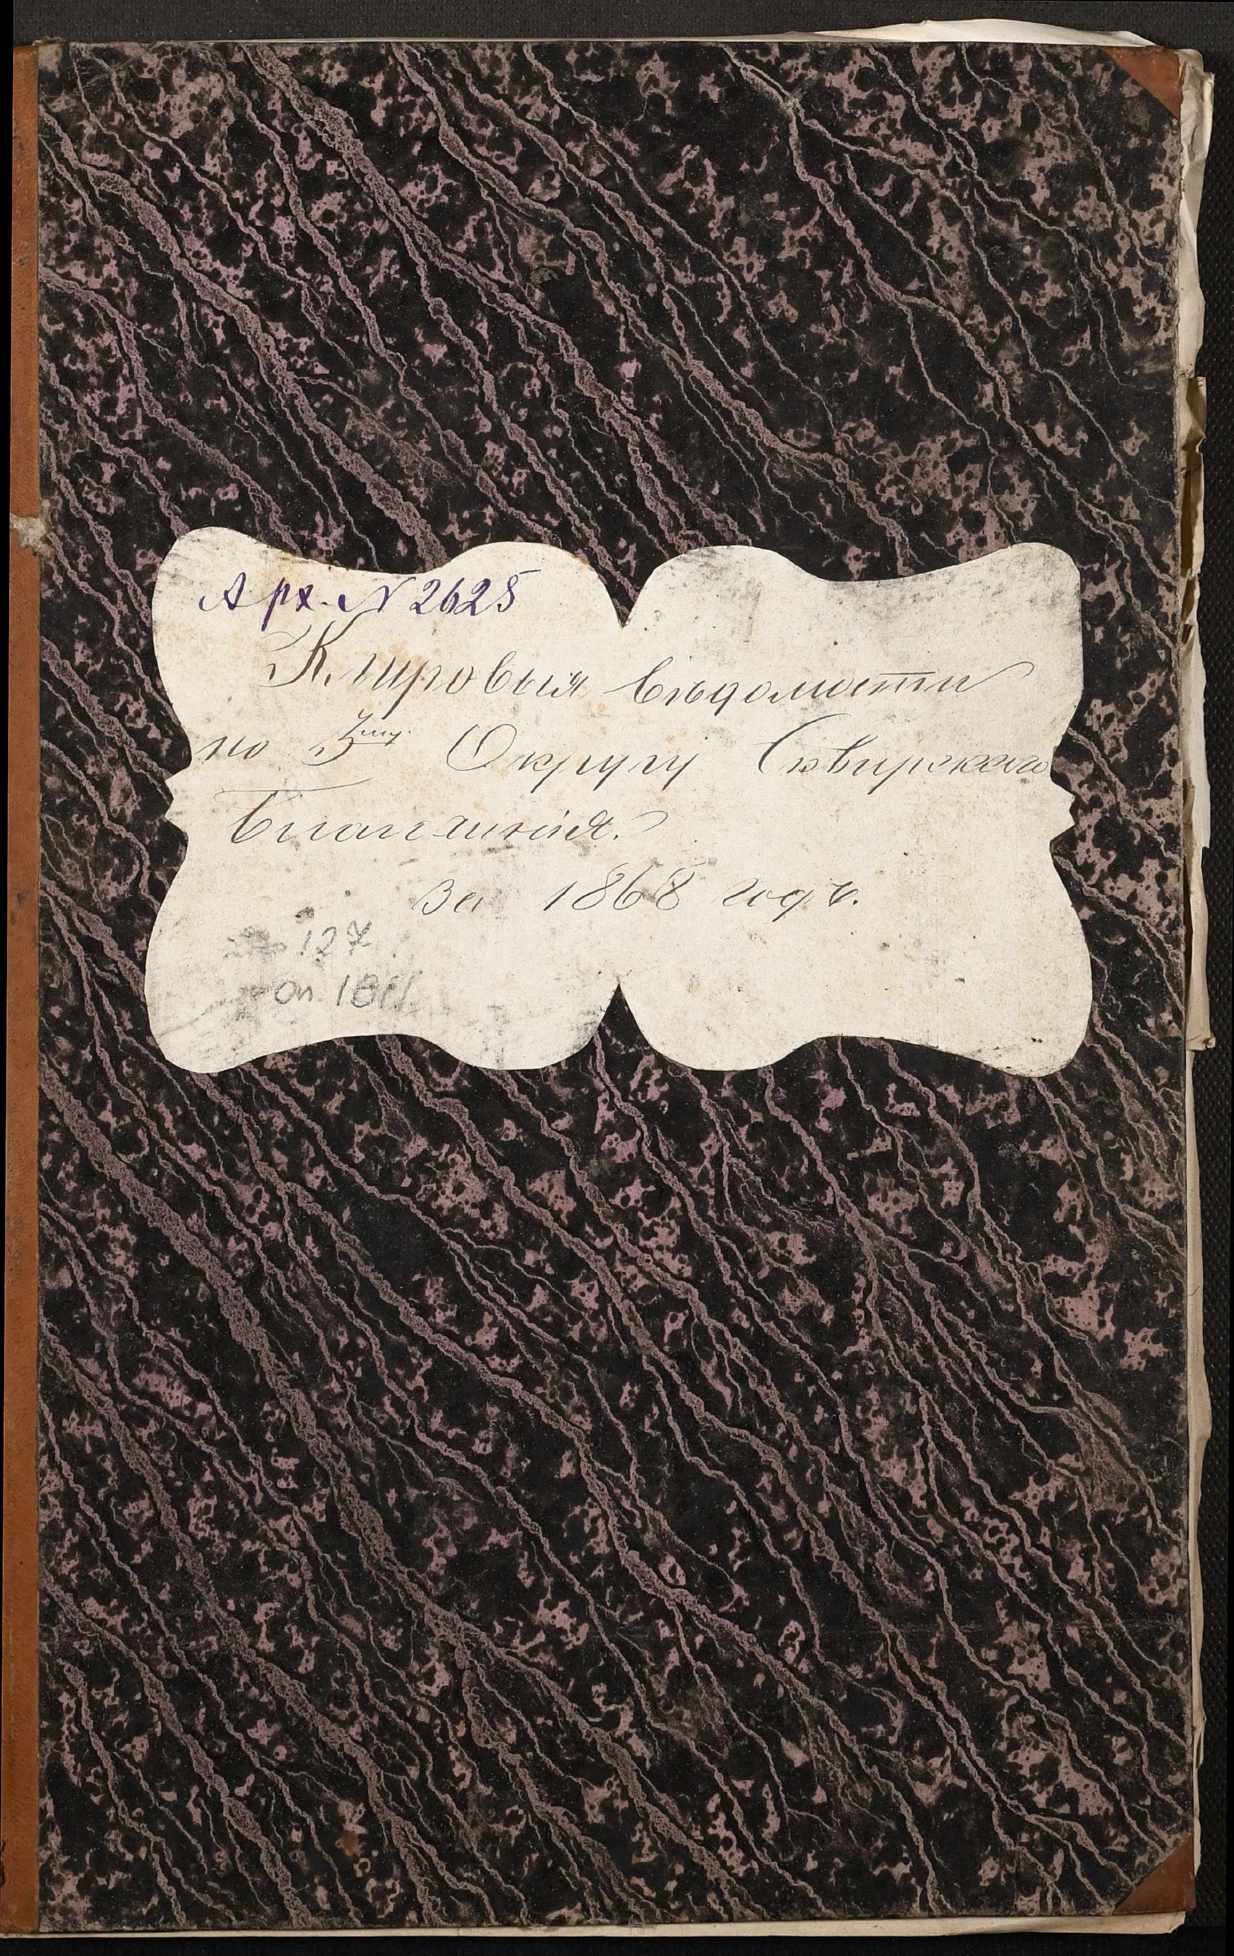 Арх. № 2625
Клировыя вѣдомости
по 5му Округу Сквирскаго
благочинія.
за 1868 годъ.
127
оп. 1811